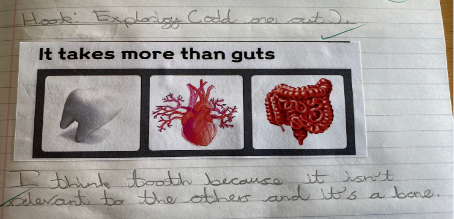 Hook: Explorigy (odd one out).
It takes more than guts
I think tooth because it isn't
relevant to the others and it's a bone.